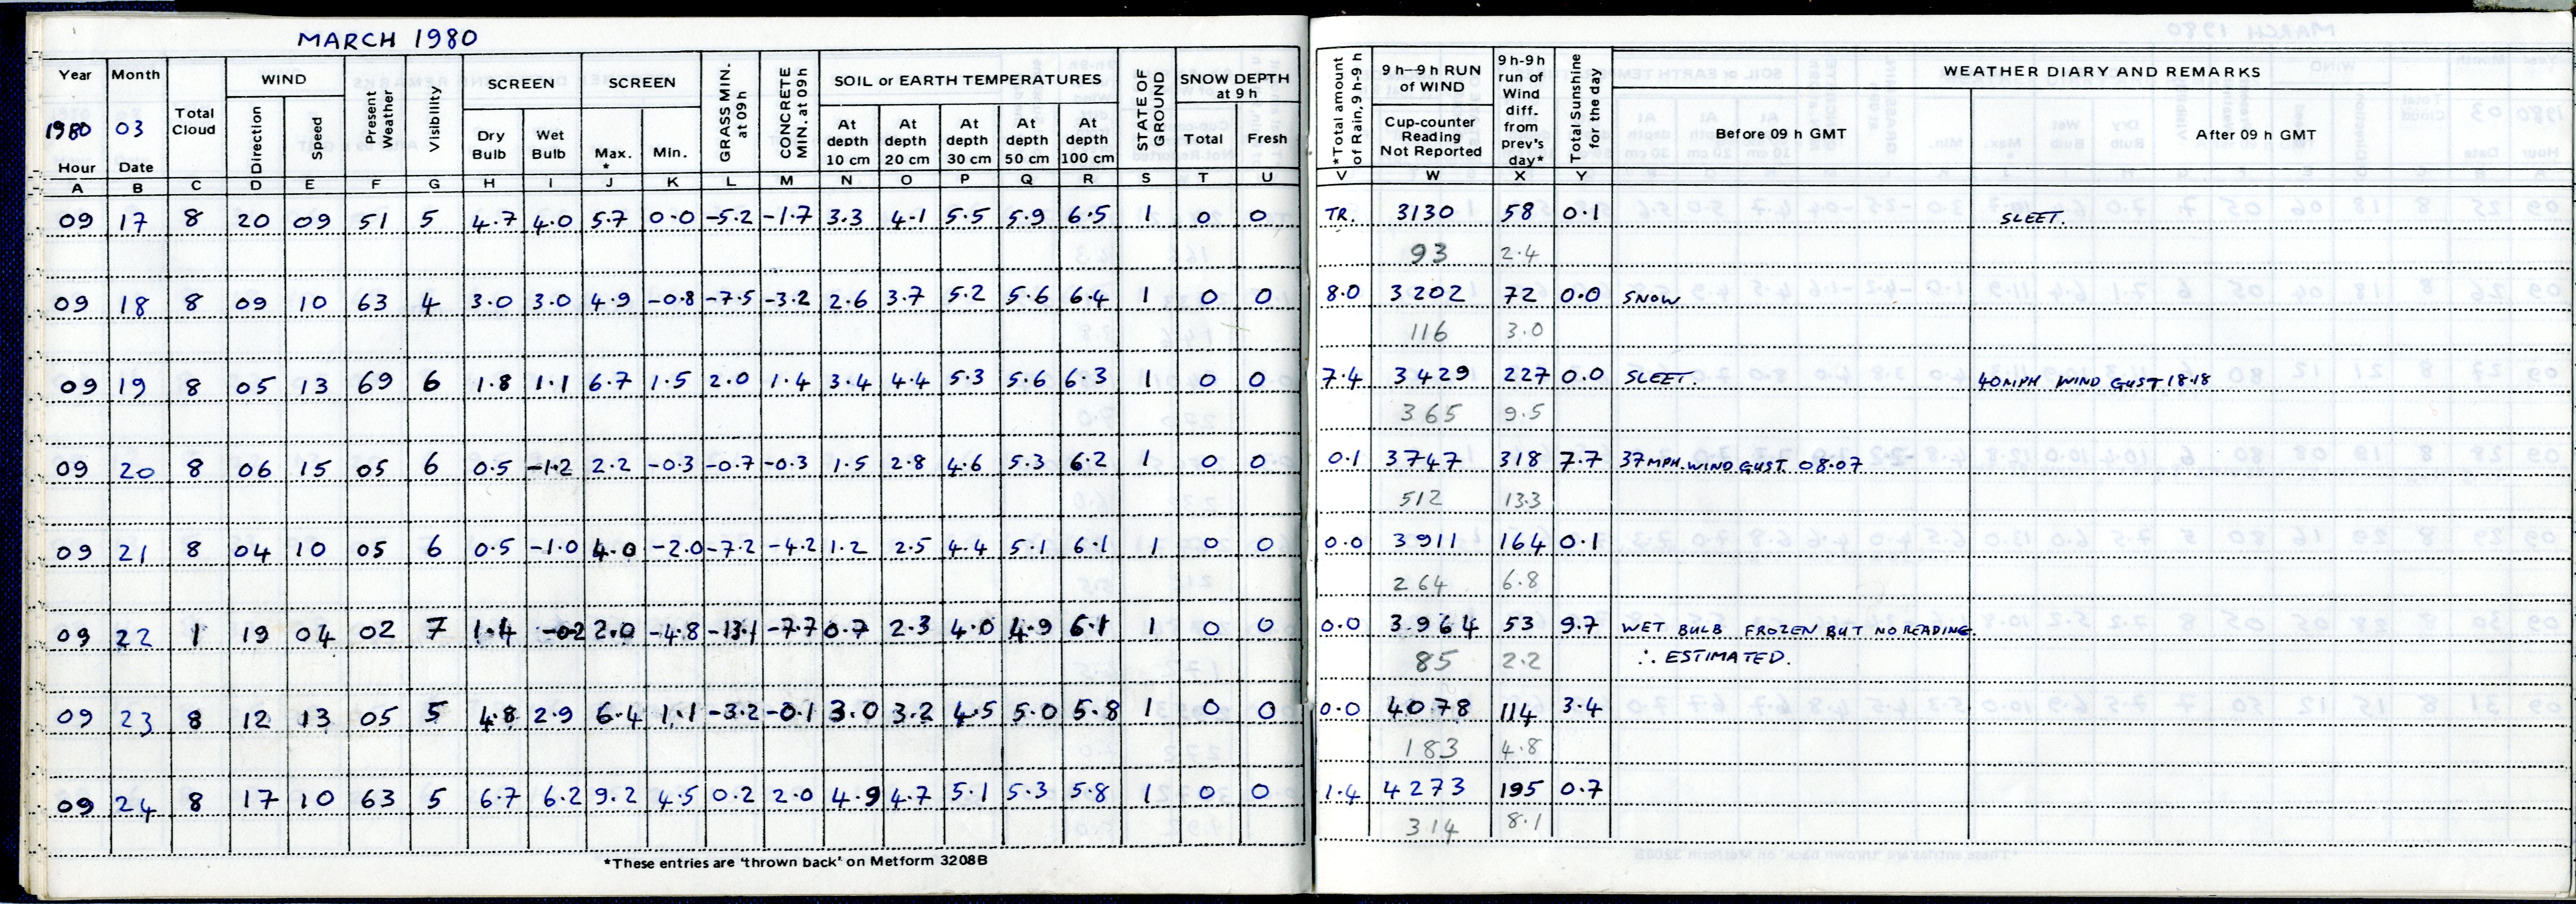 MARCH 1980
Year Month Total Cloud WIND Present Weather Visibility SCREEN SCREEN GRASS MIN. at 09h CONCRETE MIN. at 09h SOIL or EARTH TEMPERATURES STATE OF GROUND SNOW DEPTH at 9 h *Total amount of Rain, 9 h-9 h 9 h–9 h RUN of WIND 9 h-9h run of Wind diff. from prev's day* Total Sunshine for the day WEATHER DIARY AND REMARKS
1980 03 Direction Speed Dry Bulb Wet Bulb Max. * Min. At depth 10 cm At depth 20 cm At depth 30 cm At depth 50 cm At depth 100 cm Total Fresh Cup-counter Reading Not Reported Before 09 h GMT After 09 h GMT
Hour Date
A B C D E F G H I J K L M N O P Q R S T U V W X Y
09 17 8 20 09 51 5 4.7 4.0 5.7 0.0 -5.2 -1.7 3.3 4.1 5.5 5.9 6.5 1 0 0 TR. 3130 58 0.1 SLEET.
93 2.4
09 18 8 09 10 63 4 3.0 3.0 4.9 -0.8 -7.5 -3.2 2.6 3.7 5.2 5.6 6.4 1 0 0 8.0 3202 72 0.0 SNOW.
116 3.0
09 19 8 05 13 69 6 1.8 1.1 6.7 1.5 2.0 1.4 3.4 4.4 5.3 5.6 6.3 1 0 0 7.4 3429 227 0.0 SLEET. 40MPH WIND GUST 18.18
365 9.5
09 20 8 06 15 05 6 0.5 -1.2 2.2 -0.3 -0.7 -0.3 1.5 2.8 4.6 5.3 6.2 1 0 0 0.1 3747 318 7.7 37MPH. WIND GUST 08.07
512 13.3
09 21 8 04 10 05 6 0.5 -1.0 4.0 -2.0 -7.2 -4.2 1.2 2.5 4.4 5.1 6.1 1 0 0 0.0 3911 164 0.1
264 6.8
09 22 1 19 04 02 7 1.4 -0.2 2.0 -4.8 -13.1 -7.7 0.7 2.3 4.0 4.9 6.1 1 0 0 0.0 3964 53 9.7 WET BULB FROZEN BUT NO READING.
85 2.2 ∴ ESTIMATED.
09 23 8 12 13 05 5 4.8 2.9 6.4 1.1 -3.2 -0.1 3.0 3.2 4.5 5.0 5.8 1 0 0 0.0 4078 114 3.4
183 4.8
09 24 8 17 10 63 5 6.7 6.2 9.2 4.5 0.2 2.0 4.9 4.7 5.1 5.3 5.8 1 0 0 1.4 4273 195 0.7
314 8.1
*These entries are 'thrown back' on Metform 3208B